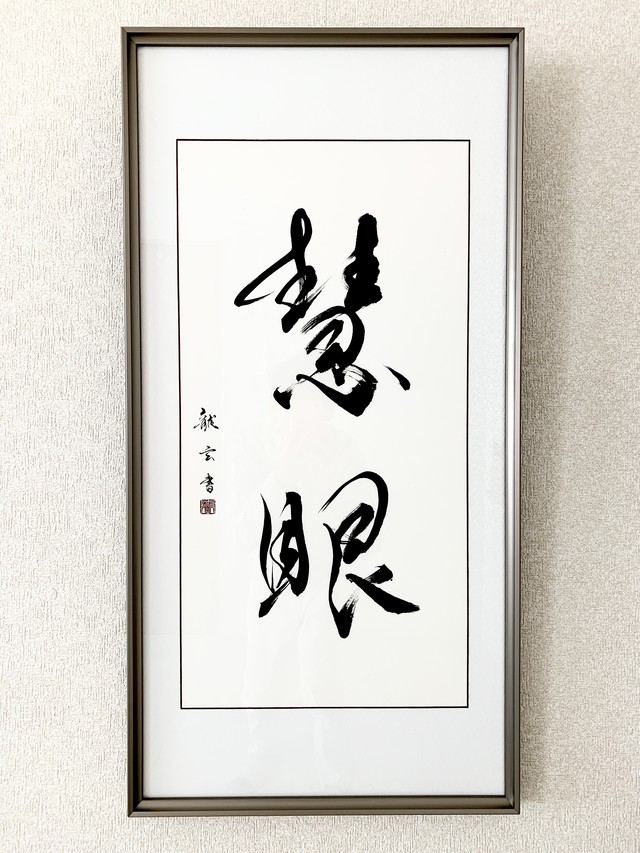 慧眼
龍玄書